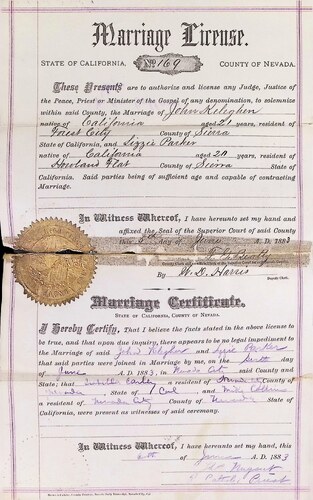 Marriage License.
STATE OF CALIFORNIA, No. 169 COUNTY OF NEVADA.
These Presents are to authorize and license any Judge, Justice of
the Peace, Priest or Minister of the Gospel of any denomination, to solemnize
within said County, the Marriage of John Keleghen
native of California aged 21 years, resident of
Forest City County of Sierra
State of California, and Lizzie Parker
native of California aged 20 years, resident of
Howland Flat County of Sierra
California. Said parties being of sufficient age and capable of contracting
Marriage.
In Witness Whereof, I have hereunto set my hand and
affixed the Seal of the Superior Court of said County
this day of June A. D. 1883
By W. D. Harris
Marriage Certificate.
STATE OF CALIFORNIA, COUNTY OF NEVADA.
I Hereby Certify, That I believe the facts stated in the above license to
be true, and that upon due inquiry, there appears to be no legal impediment to
the Marriage of said John and Parker
that said parties were joined in Marriage by me, on the day
of June A. D. 1883, in Nevada City said County and
State; that a resident of
Nevada, State of Cal and
a resident of Nevada City County of Nevada State of
California, were present as witnesses of said ceremony.
In Witness Whereof, I have hereunto set my hand, this
day of 1883